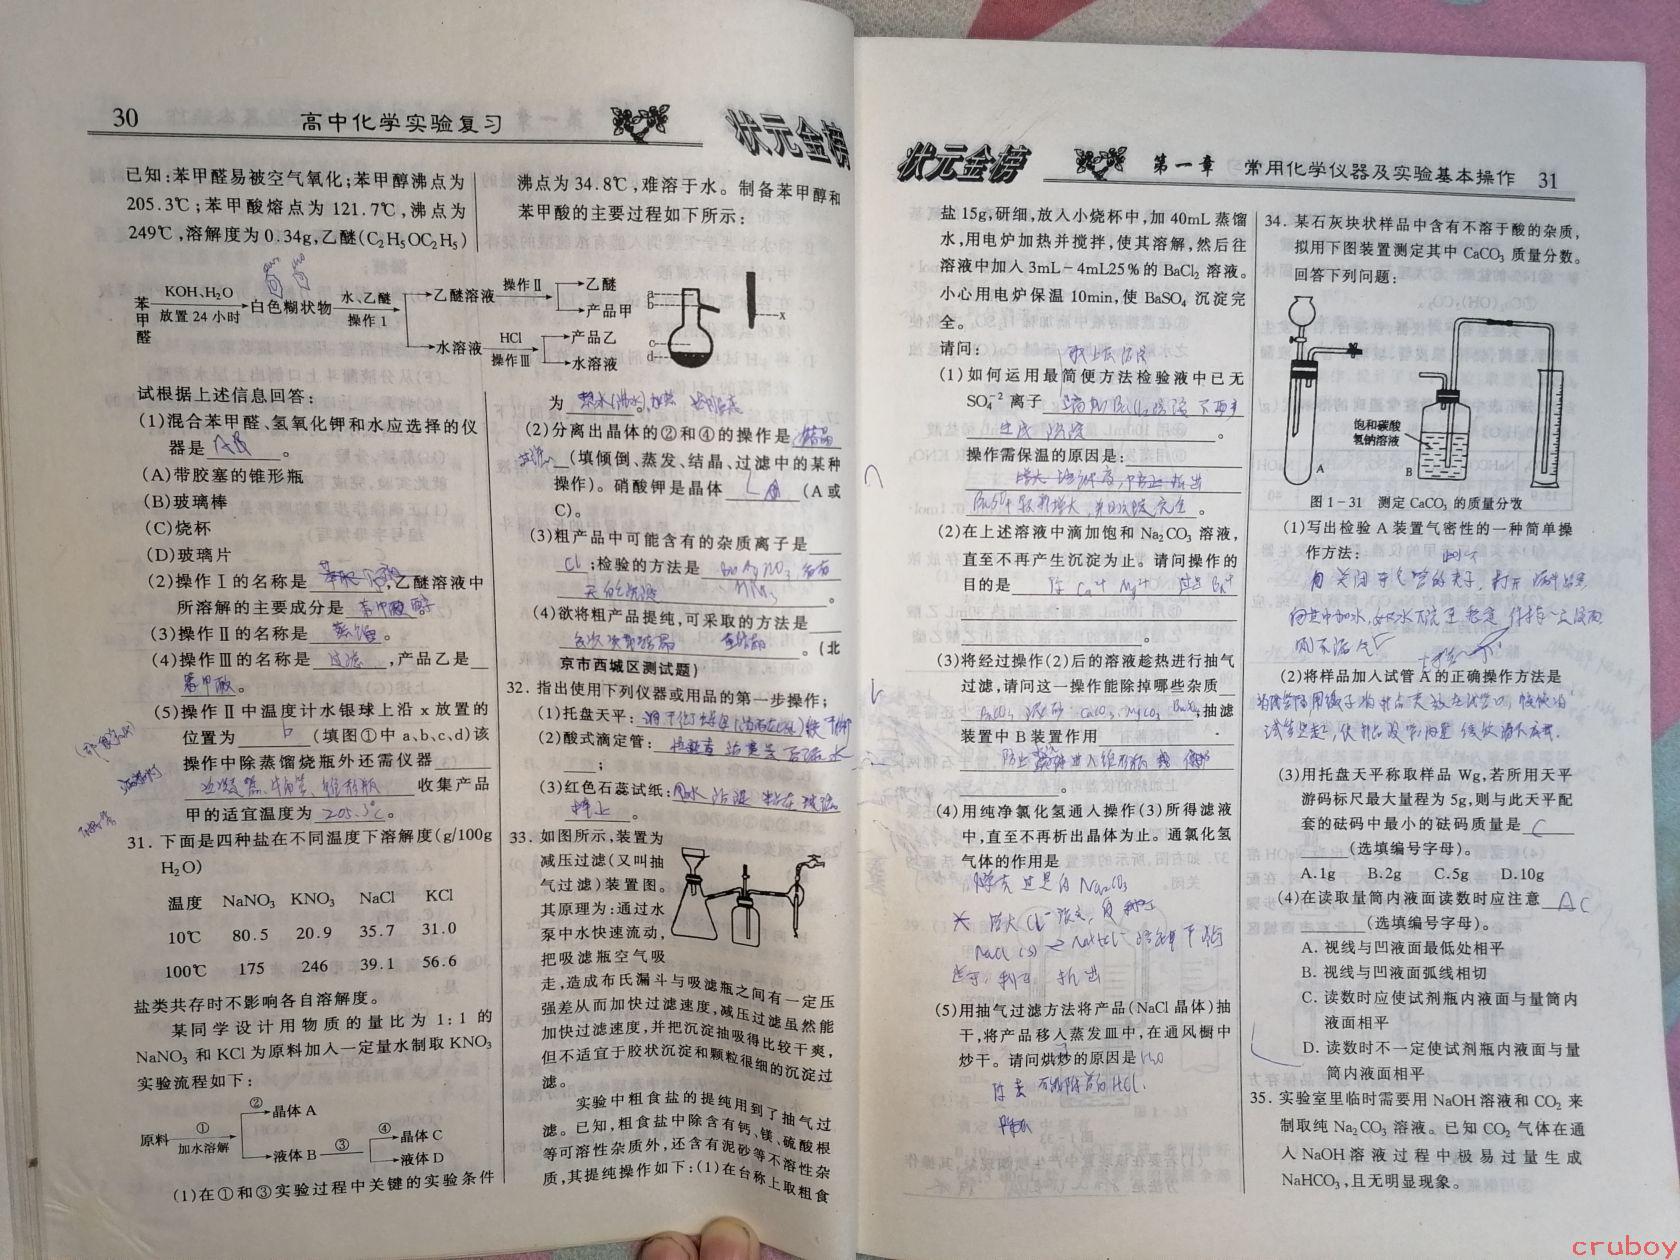 30 高中化学实验复习 状元金榜
已知:苯甲醛易被空气氧化;苯甲醇沸点为
205.3℃;苯甲酸熔点为121.7℃,沸点为
249℃,溶解度为0.34g,乙醚(C₂H₅OC₂H₅)
沸点为34.8℃,难溶于水。制备苯甲醇和
苯甲酸的主要过程如下所示:
苯甲醛
KOH、H₂O
放置24小时
白色糊状物
水、乙醚
操作1
乙醚溶液
操作Ⅱ
乙醚
产品甲
水溶液
HCl
操作Ⅲ
产品乙
水溶液
a
b
c
d
x
试根据上述信息回答:
(1)混合苯甲醛、氢氧化钾和水应选择的仪
器是 AB 。
(A)带胶塞的锥形瓶
(B)玻璃棒
(C)烧杯
(D)玻璃片
(2)操作Ⅰ的名称是 ,乙醚溶液中
所溶解的主要成分是 。
(3)操作Ⅱ的名称是 蒸馏 。
(4)操作Ⅲ的名称是 过滤 ,产品乙是
苯甲酸。
(5)操作Ⅱ中温度计水银球上沿x放置的
位置为 b (填图①中a、b、c、d)该
操作中除蒸馏烧瓶外还需仪器
收集产品
甲的适宜温度为 205.3℃ 。
31. 下面是四种盐在不同温度下溶解度(g/100g
H₂O)
温度 NaNO₃ KNO₃ NaCl KCl
10℃ 80.5 20.9 35.7 31.0
100℃ 175 246 39.1 56.6
盐类共存时不影响各自溶解度。
某同学设计用物质的量比为1:1的
NaNO₃和KCl为原料加入一定量水制取KNO₃
实验流程如下:
原料
①
加水溶解
②
晶体A
液体B
③
④
晶体C
液体D
(1)在①和③实验过程中关键的实验条件
为
(2)分离出晶体的②和④的操作是 结晶
(填倾倒、蒸发、结晶、过滤中的某种
操作)。硝酸钾是晶体 (A或
C)。
(3)粗产品中可能含有的杂质离子是
Cl⁻;检验的方法是
。
(4)欲将粗产品提纯,可采取的方法是
。(北
京市西城区测试题)
32. 指出使用下列仪器或用品的第一步操作;
(1)托盘天平:
(2)酸式滴定管:
;
(3)红色石蕊试纸:
。
33. 如图所示,装置为
减压过滤(又叫抽
气过滤)装置图。
其原理为:通过水
泵中水快速流动,
把吸滤瓶空气吸
走,造成布氏漏斗与吸滤瓶之间有一定压
强差从而加快过滤速度,减压过滤虽然能
加快过滤速度,并把沉淀抽吸得比较干爽,
但不适宜于胶状沉淀和颗粒很细的沉淀过
滤。
实验中粗食盐的提纯用到了抽气过
滤。已知,粗食盐中除含有钙、镁、硫酸根
等可溶性杂质外,还含有泥砂等不溶性杂
质,其提纯操作如下:(1)在台称上取粗食
状元金榜 第一章 常用化学仪器及实验基本操作 31
盐15g,研细,放入小烧杯中,加40mL蒸馏
水,用电炉加热并搅拌,使其溶解,然后往
溶液中加入3mL-4mL25%的BaCl₂溶液。
小心用电炉保温10min,使BaSO₄沉淀完
全。
请问:
(1)如何运用最简便方法检验液中已无
SO₄⁻²离子
。
操作需保温的原因是:
。
(2)在上述溶液中滴加饱和Na₂CO₃溶液,
直至不再产生沉淀为止。请问操作的
目的是 除Ca²⁺ Mg²⁺ 过量Ba²⁺
。
(3)将经过操作(2)后的溶液趁热进行抽气
过滤,请问这一操作能除掉哪些杂质
;抽滤
装置中B装置作用
。
(4)用纯净氯化氢通入操作(3)所得滤液
中,直至不再析出晶体为止。通氯化氢
气体的作用是
(5)用抽气过滤方法将产品(NaCl晶体)抽
干,将产品移入蒸发皿中,在通风橱中
炒干。请问烘炒的原因是
34. 某石灰块状样品中含有不溶于酸的杂质,
拟用下图装置测定其中CaCO₃质量分数。
回答下列问题:
饱和碳酸
氢钠溶液
A
B
图1-31 测定CaCO₃的质量分数
(1)写出检验A装置气密性的一种简单操
作方法:
(2)将样品加入试管A的正确操作方法是
(3)用托盘天平称取样品Wg,若所用天平
游码标尺最大量程为5g,则与此天平配
套的砝码中最小的砝码质量是 C
(选填编号字母)。
A.1g B.2g C.5g D.10g
(4)在读取量筒内液面读数时应注意 AC
(选填编号字母)。
A. 视线与凹液面最低处相平
B. 视线与凹液面弧线相切
C. 读数时应使试剂瓶内液面与量筒内
液面相平
D. 读数时不一定使试剂瓶内液面与量
筒内液面相平
35. 实验室里临时需要用NaOH溶液和CO₂来
制取纯Na₂CO₃溶液。已知CO₂气体在通
入NaOH溶液过程中极易过量生成
NaHCO₃,且无明显现象。
cruboy